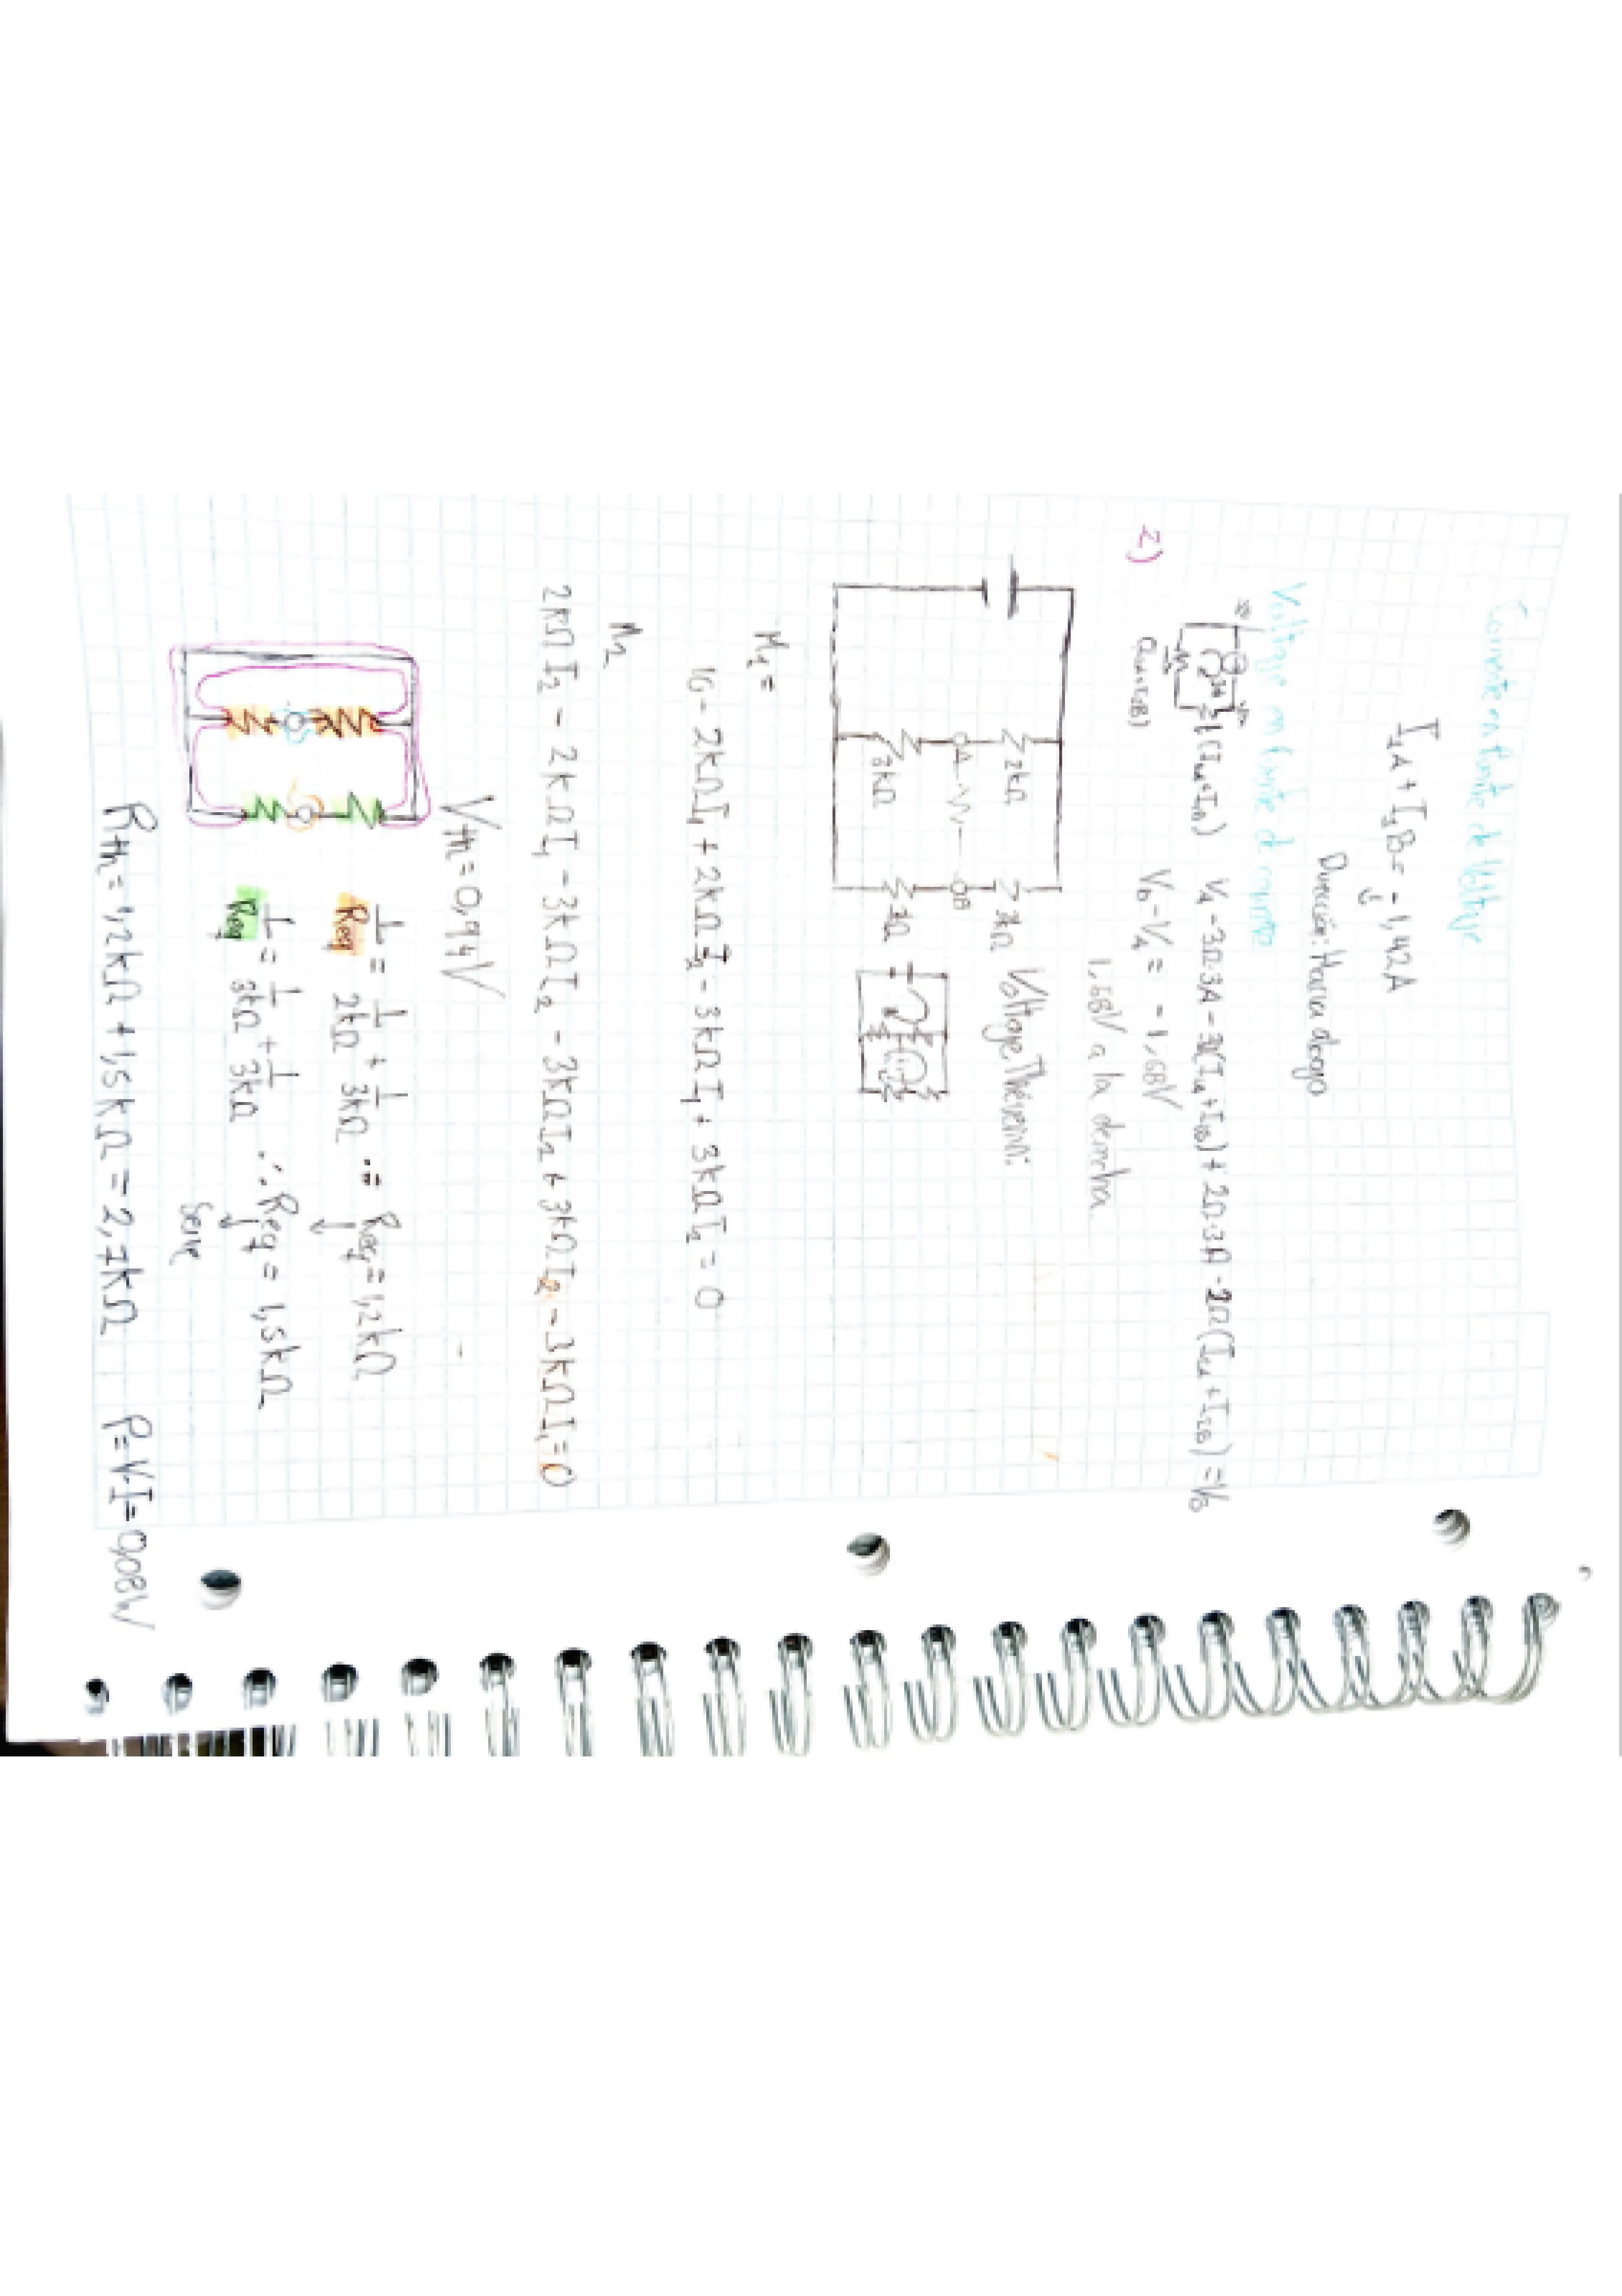 Corriente en fuente de Voltaje
I₁A + I₁B = -1,42A
Dirección: Hacia abajo
Voltaje en fuente de corriente
V₄ - 3Ω·3A - 3Ω(I + I) + 2Ω·3A - 2Ω(I + I) = V₆
V₆ - V₄ = -1,68V
1,68V a la derecha
2)
2kΩ
3kΩ
A
B
3kΩ
3kΩ
Voltage Thévenin:
M₁ =
16 - 2kΩI₁ + 2kΩI₂ - 3kΩI₁ + 3kΩI₂ = 0
M₂
2kΩI₂ - 2kΩI₁ - 3kΩI₂ - 3kΩI₂ + 3kΩI₂ - 3kΩI₁ = 0
Vth = 0,94V
1/Req = 1/2kΩ + 1/3kΩ ∴ Req = 1,2kΩ
1/Req = 1/3kΩ + 1/3kΩ ∴ Req = 1,5kΩ
Serie
Rth = 1,2kΩ + 1,5kΩ = 2,7kΩ P = V·I = 0,08W